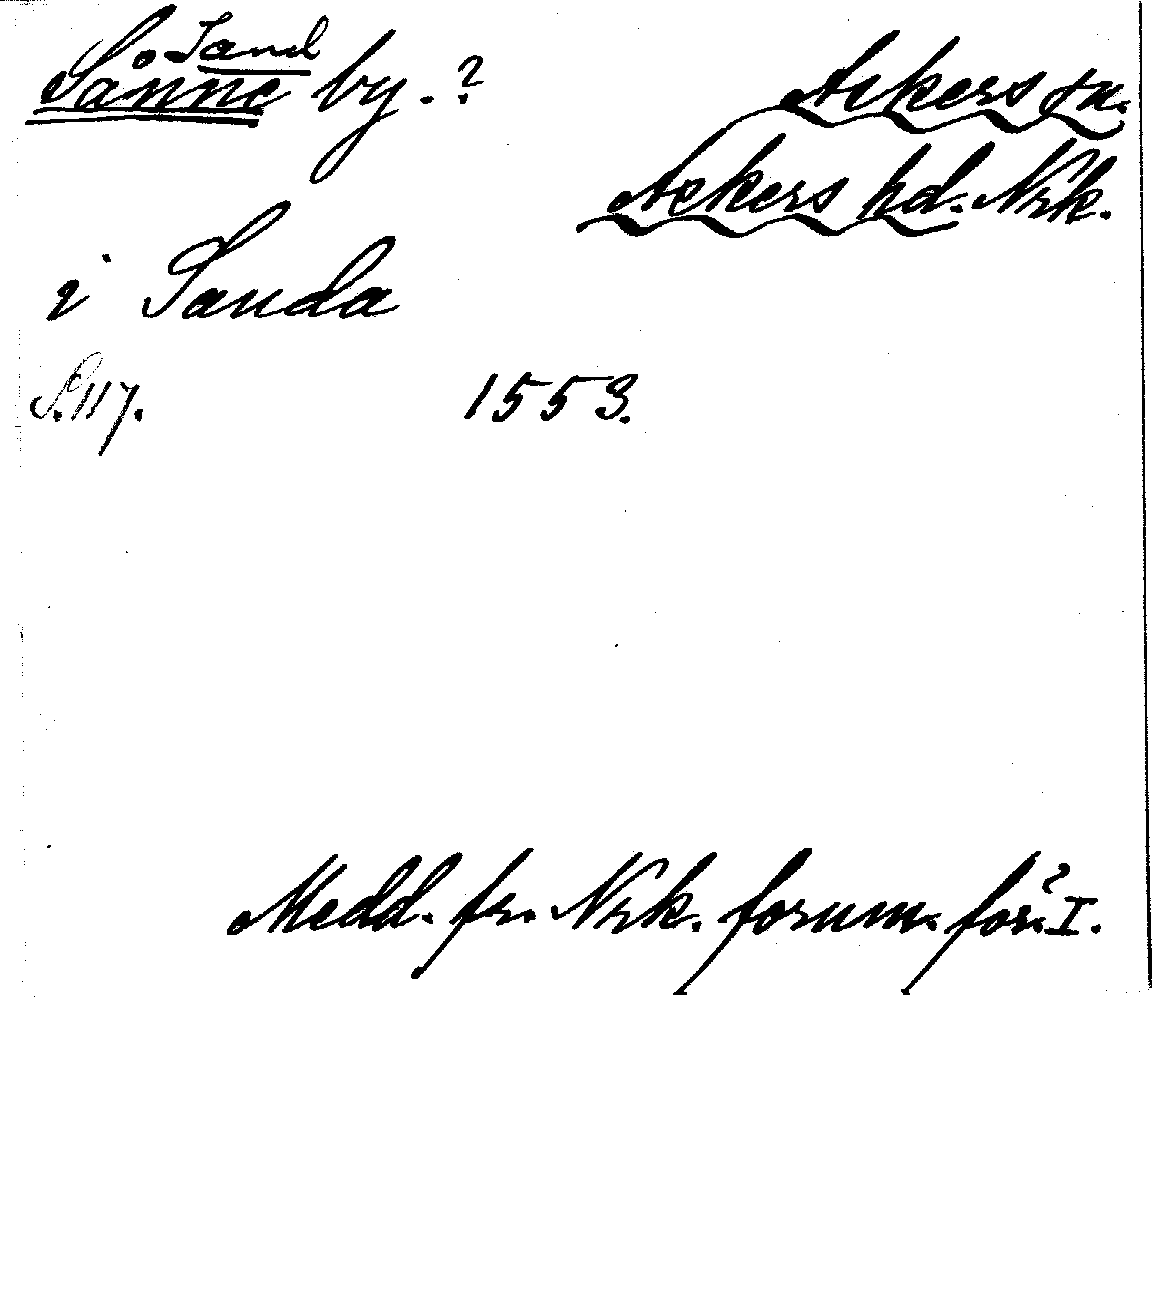 Sand
Sånne by.? Askers sn.
Askers hd. Nrk.
i Sanda
S. 117. 1553.
Medd. fr. Nrk. fornm. för. I.